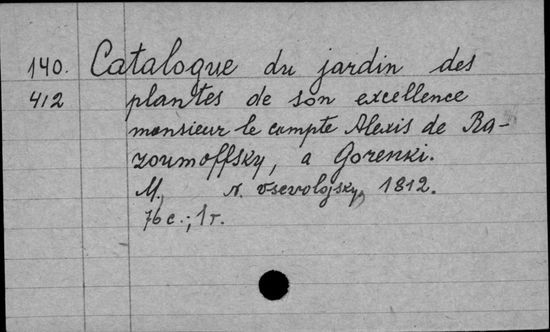 140. Catalogue du jardin des
412 plantes de son excellence
monsieur le compte Alexis de Ra-
zoumoffsky, a Gorenki.
M. N. Vsevolojsky, 1812.
76 c.; 1 г.